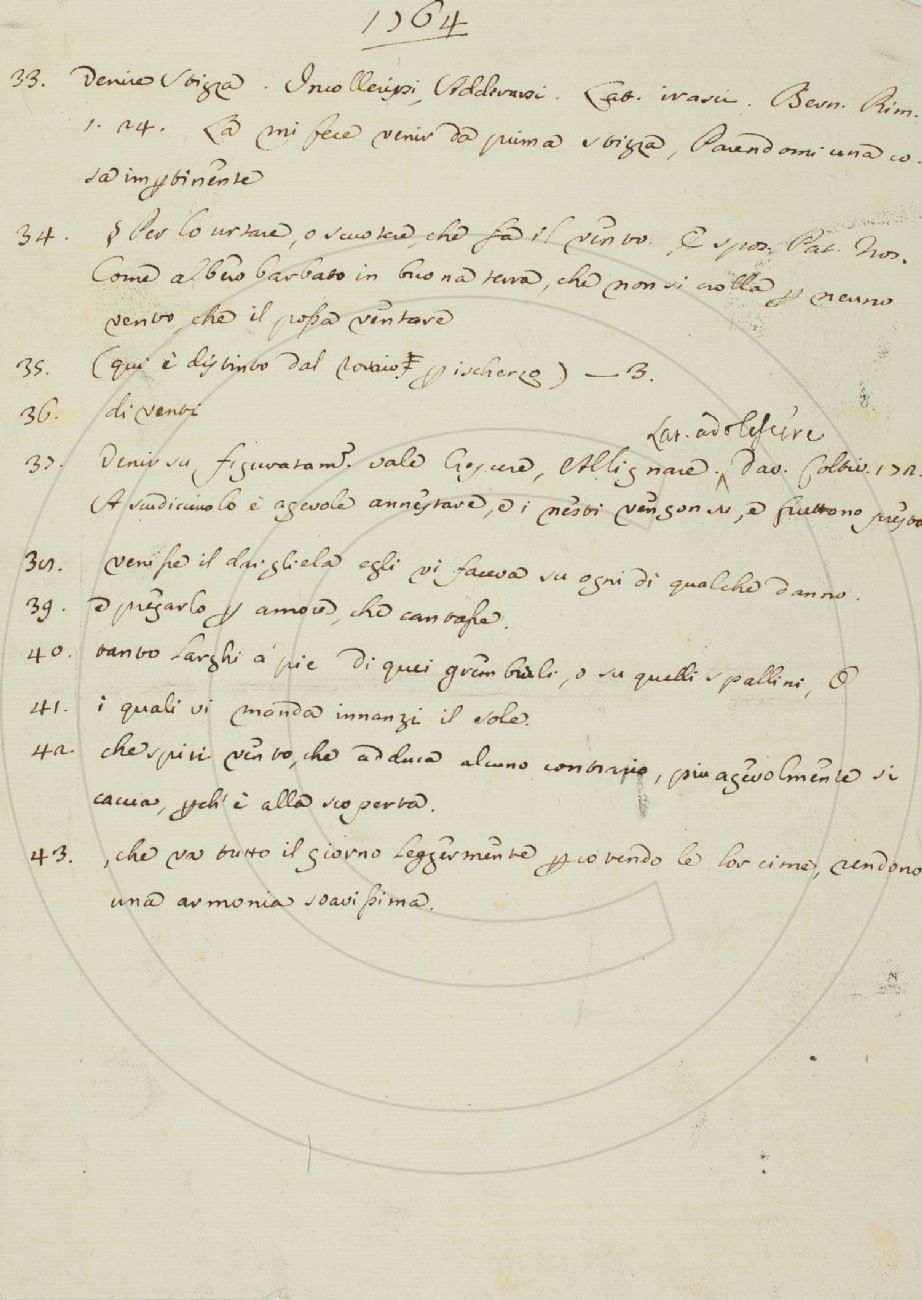 1764
33. Venire Stizza. Incollerirsi, Addirarsi. Lat. irasci. Bern. Rim.
1. 24. La mi fece venir da prima stizza, Parendomi una co-
sa imꝑtinente
34. § Per lo urtare, o scuotere, che fa il vento. Espos. Pat. Nos.
Come albero barbato in buona terra, che non si crolla ꝑ neuno
vento, che il possa ventare
35. (qui è distinto dal ꝑ ischerzo) — 3.
36. di venti
Lat. adolescere
37. Venir su figuratamᵉ. vale Crescere, Allignare. Dav. Coltiv. 172.
A scudicciuolo è agevole annestare, e i nesti vengon su, e fruttono presto
38. venisse il dargliela egli vi faceva su ogni dì qualche danno.
39. e pregarlo ꝑ amore, che cantasse.
40. tanto larghi a piè di quei grembiali, o su quelli spallini,
41. i quali vi manda innanzi il sole.
42. che spiri vento, che adduca alcuno contrario, più agevolmente si
caccia, ꝑch' è alla scoperta.
43. , che va tutto il giorno leggermente ꝑcotendo le lor cime, rendono
una armonia soavissima.